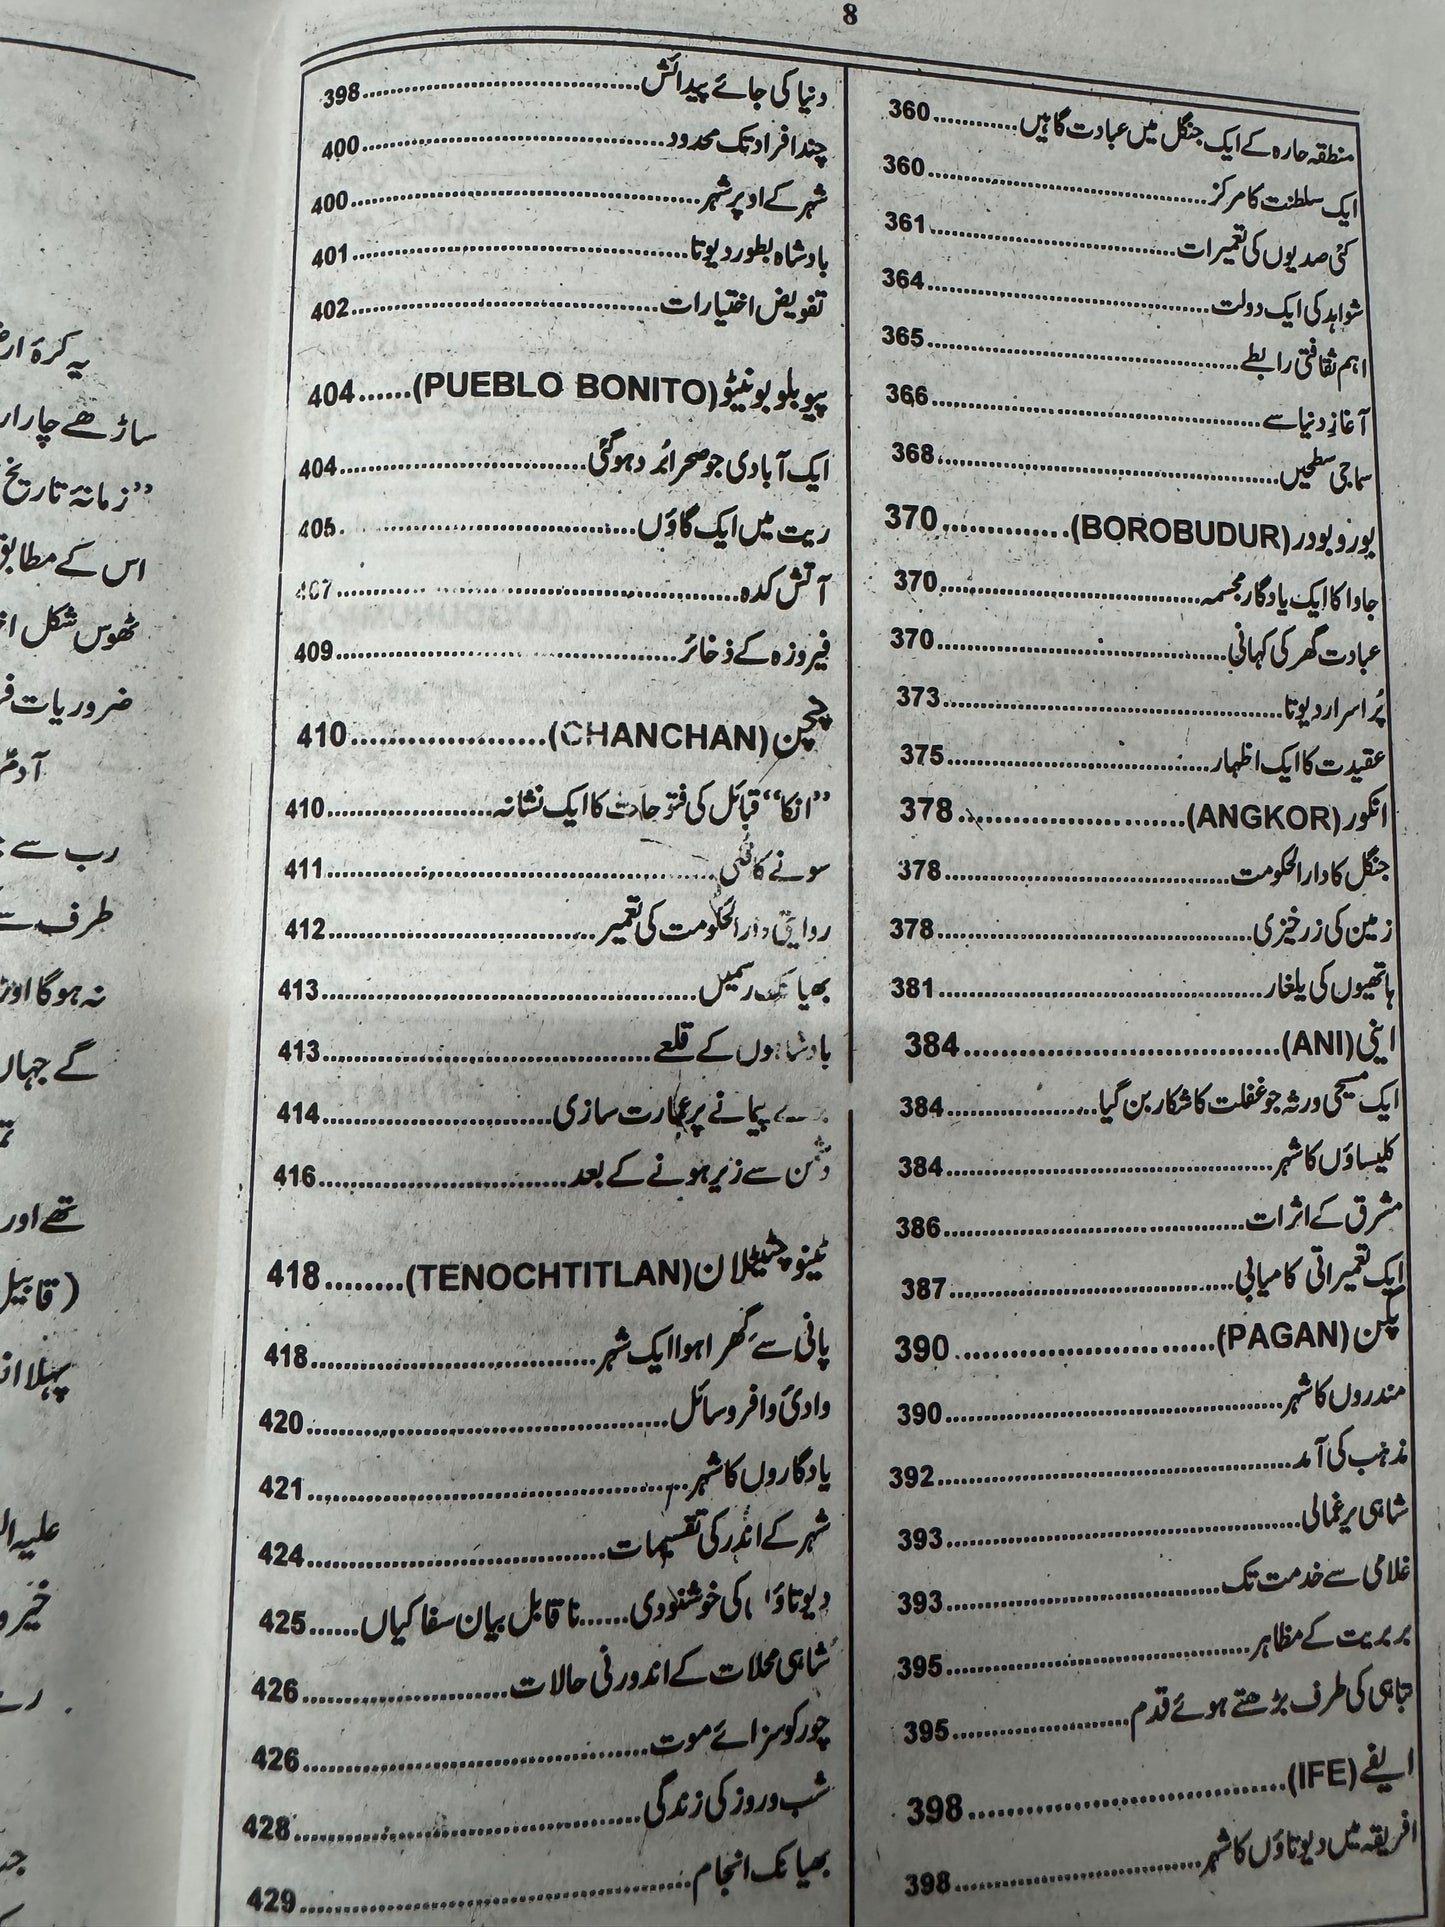 8
منطقہ حارہ کے ایک جنگل میں عبادت گاہیں............360
ایک سلطنت کا مرکز............360
کئی صدیوں کی تعمیرات............361
شواہد کی ایک دولت............364
اہم ثقافتی رابطے............365
آغاز دنیا سے............366
سماجی سطحیں............368
بوروبودر (BOROBUDUR)............370
جاوا کا ایک یادگار مجسمہ............370
عبادت گھر کی کہانی............370
پُر اسرار دیوتا............373
عقیدت کا ایک اظہار............375
انکور (ANGKOR)............378
جنگل کا دارالحکومت............378
زمین کی زرخیزی............378
ہاتھیوں کی یلغار............381
اینی (ANI)............384
ایک مسیحی ورثہ جو غفلت کا شکار بن گیا............384
کلیساؤں کا شہر............384
مشرق کے اثرات............386
ایک تعمیراتی کامیابی............387
پگن (PAGAN)............390
مندروں کا شہر............390
مذہب کی آمد............392
شاہی یرغمالی............393
غلامی سے خدمت تک............393
بربریت کے مظاہر............395
تباہی کی طرف بڑھتے ہوئے قدم............395
ایفے (IFE)............398
افریقہ میں دیوتاؤں کا شہر............398
دنیا کی جائے پیدائش............398
چند افراد تک محدود............400
شہر کے اوپر شہر............400
بادشاہ بطور دیوتا............401
تفویض اختیارات............402
پیوبلو بونیٹو (PUEBLO BONITO)......404
ایک آبادی جو صحرا بُرد ہو گئی............404
ریت میں ایک گاؤں............405
آتش کدہ............407
فیروزہ کے ذخائر............409
چچن (CHANCHAN)............410
”انکا“ قبائل کی فتوحات کا ایک نشانہ............410
سونے کا............411
روایتی دارالحکومت کی تعمیر............412
بھیانک رسمیں............413
بادشاہوں کے قلعے............413
پیمانے پر عمارت سازی............414
دشمن سے زیر ہونے کے بعد............416
ٹینوچٹیٹلان (TENOCHTITLAN)........418
پانی سے گِھرا ہوا ایک شہر............418
وادیٔ وافر وسائل............420
یادگاروں کا شہر............421
شہر کے اندر کی تقسیمات............424
دیوتاؤں کی خوشنودی......ناقابل بیان سفاکیاں......425
شاہی محلات کے اندورنی حالات............426
چور کو سزائے موت............426
شب و روز کی زندگی............428
بھیانک انجام............429
یہ کرۂ
ساڑھے چار
”زمانۂ تاریخ
اس کے مطابق
ٹھوس شکل
ضروریات
رب سے
طرف
نہ ہوگا اور
گے جہاں
تھے اور
(قابیل
پہلا